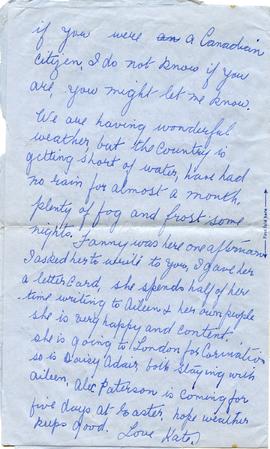 if you were a Canadian
citizen, I do not know if you
are, you might let me know.
We are having wonderful
weather, but the Country is
getting short of water, have had
no rain for almost a month,
plenty of fog and frost some
nights. Fanny was here one afternoon
I asked her to write to you, I gave her
a letter Card, she spends half of her
time writing to Aileen & her own people
she is very happy and content.
she is going to London for Corination
so is Daisy Adair, both Staying with
aileen, Alec Paterson is coming for
five days at Easter, hope weather
keeps good. Love Kate.